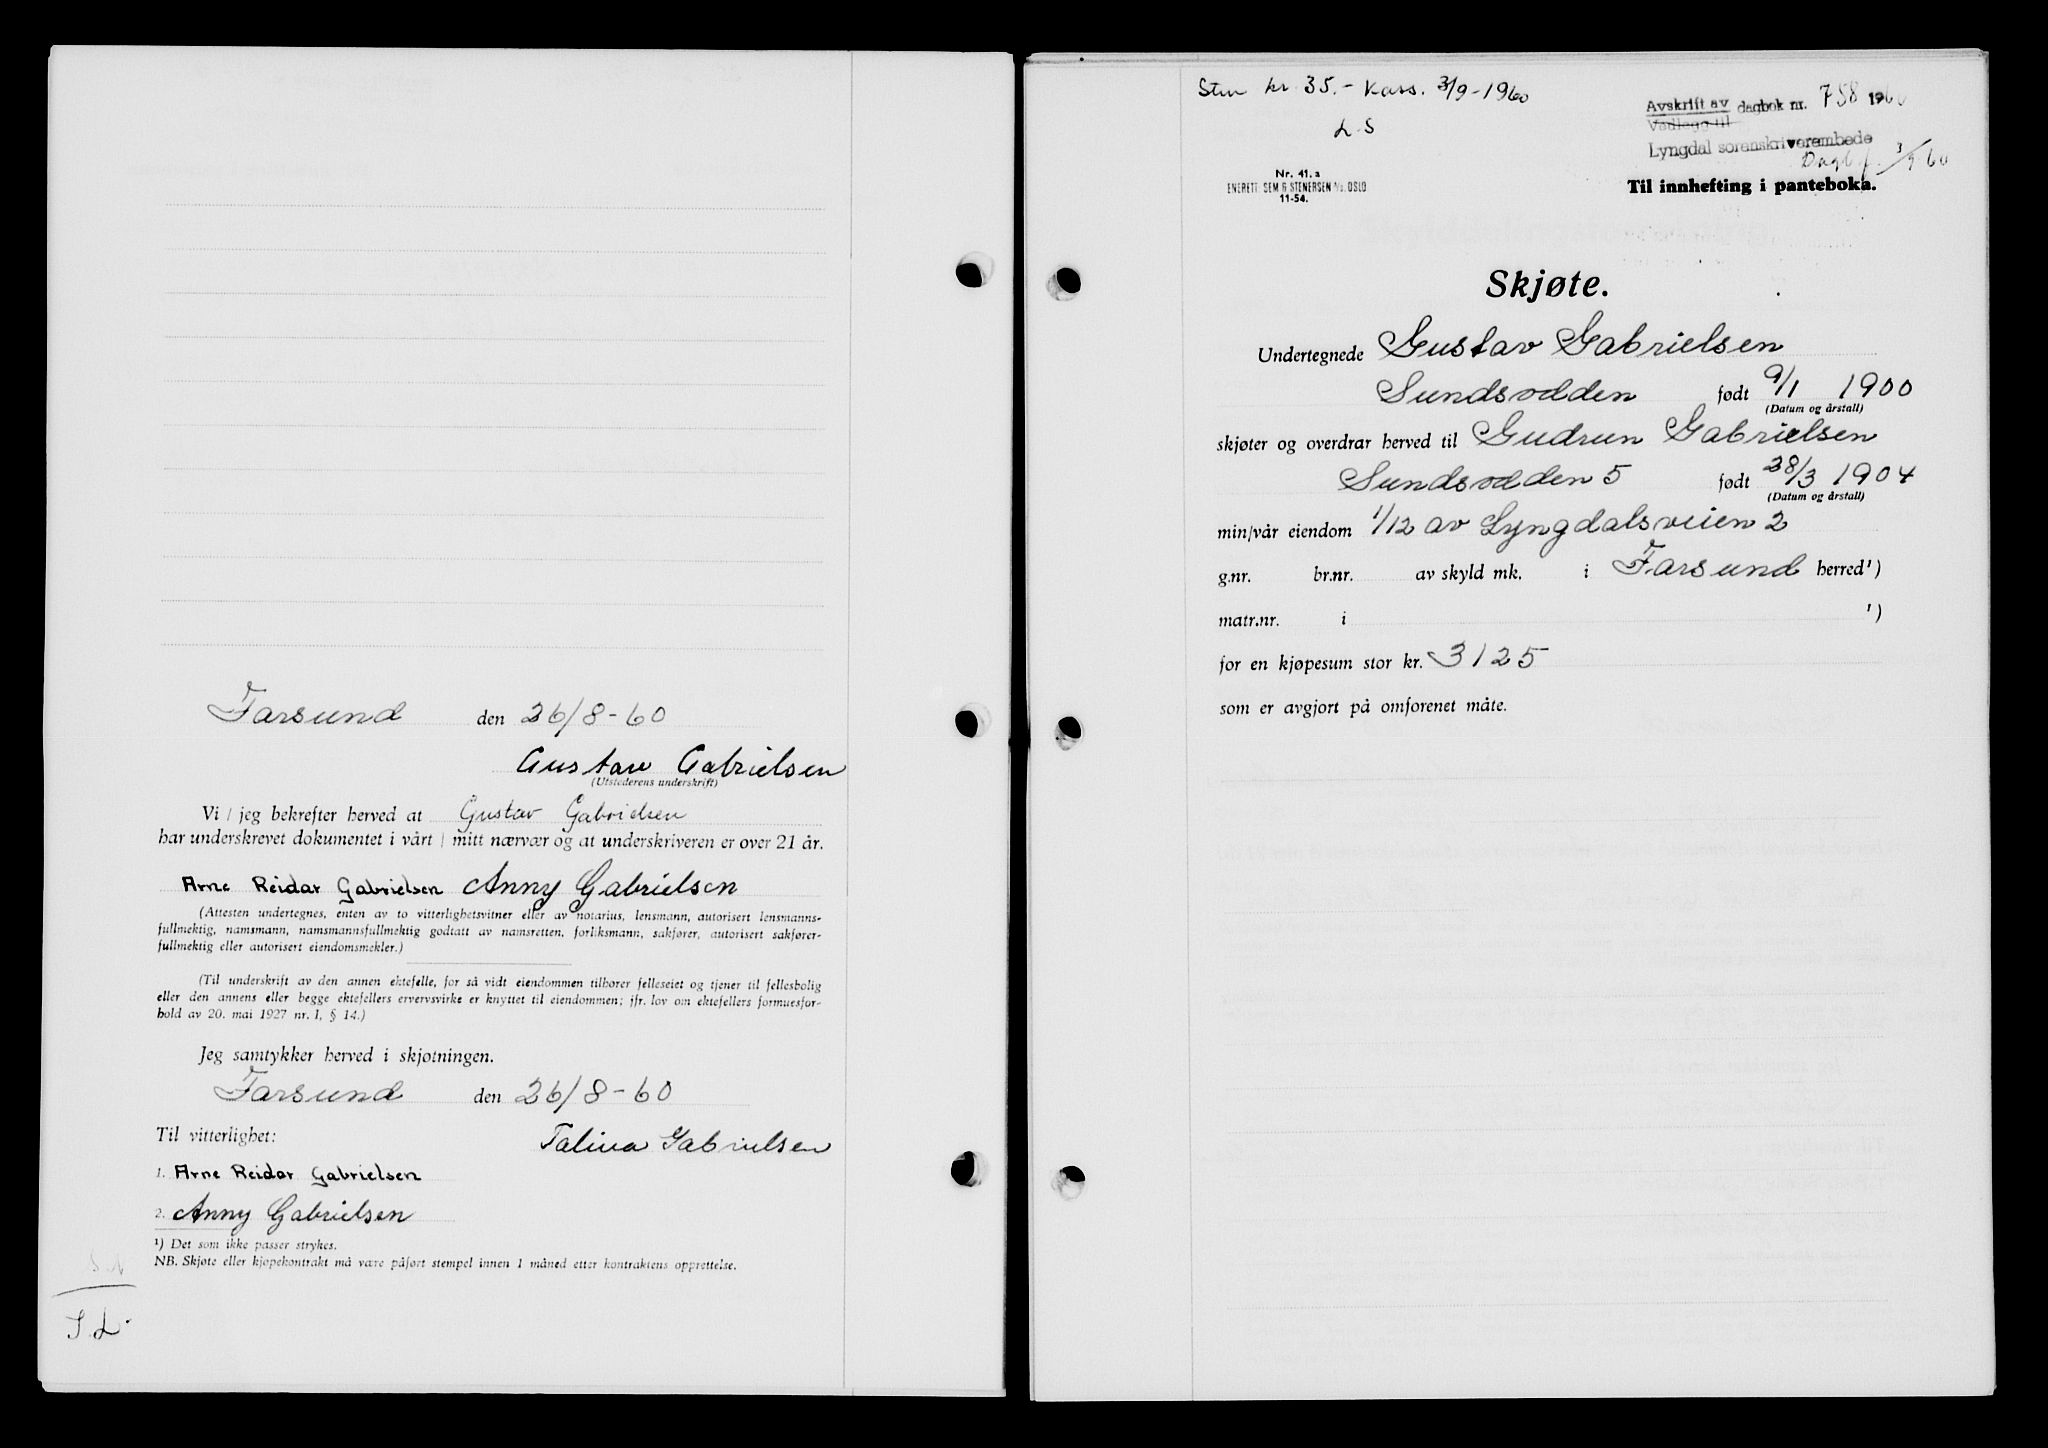 Farsund den 26/8-60
Gustav Gabrielsen
(Utstederens underskrift)
Vi / jeg bekrefter herved at Gustav Gabrielsen
har underskrevet dokumentet i vårt / mitt nærvær og at underskriveren er over 21 år.
Arne Reidar Gabrielsen Anny Gabrielsen
(Attesten undertegnes, enten av to vitterlighetsvitner eller av notarius, lensmann, autorisert lensmanns-
fullmektig, namsmann, namsmannsfullmektig godtatt av namsretten, forliksmann, sakfører, autorisert sakfører-
fullmektig eller autorisert eiendomsmekler.)
(Til underskrift av den annen ektefelle, for så vidt eiendommen tilhører felleseiet og tjener til fellesbolig
eller den annens eller begge ektefellers ervervsvirke er knyttet til eiendommen; jfr. lov om ektefellers formuesfor-
hold av 20. mai 1927 nr. 1, § 14.)
Jeg samtykker herved i skjøtningen.
Farsund den 26/8-60
Til vitterlighet:
Talina Gabrielsen
1. Arne Reidar Gabrielsen
2. Anny Gabrielsen
¹) Det som ikke passer strykes.
NB. Skjøte eller kjøpekontrakt må være påført stempel innen 1 måned etter kontraktens opprettelse.
S.L.
Stm kr. 35.- Kass. 3/9-1960
L.S
Avskrift av dagbok nr. 758 1960
Vedlegg til
Lyngdal sorenskriverembede
Dagb.f. 3/9 60
Nr. 41.a
ENERETT: SEM & STENERSEN A/S. OSLO
11-54.
Til innhefting i panteboka.
Skjøte.
Undertegnede Gustav Gabrielsen
Sundsodden født 9/1 1900
(Datum og årstall)
skjøter og overdrar herved til Gudrun Gabrielsen
Sundsodden 5 født 28/3 1904
(Datum og årstall)
min/vår eiendom 1/12 av Lyngdalsveien 2
g.nr. br.nr. av skyld mk. i Farsund herred¹)
matr.nr. i ¹)
for en kjøpesum stor kr. 3125
som er avgjort på omforenet måte.